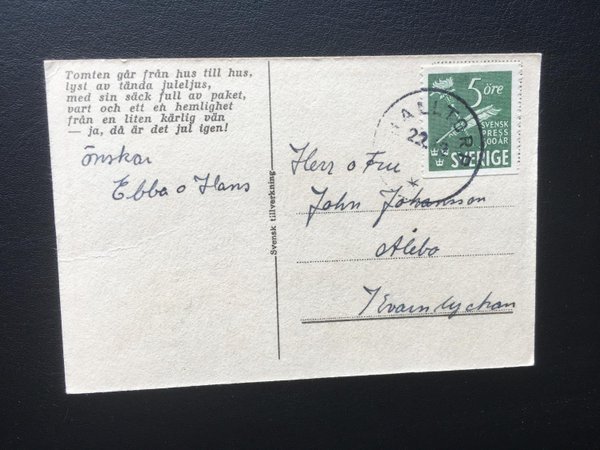 Tomten går från hus till hus,
lyst av tända juleljus,
med sin säck full av paket,
vart och ett en hemlighet
från en liten kärlig vän
— ja, då är det jul igen!
önskar
Ebba o Hans
Svensk tillverkning
HALLTORP
22.
5 öre
SVENSK
PRESS
300 ÅR
SVERIGE
Herr o Fru
John Johansson
Ålebo